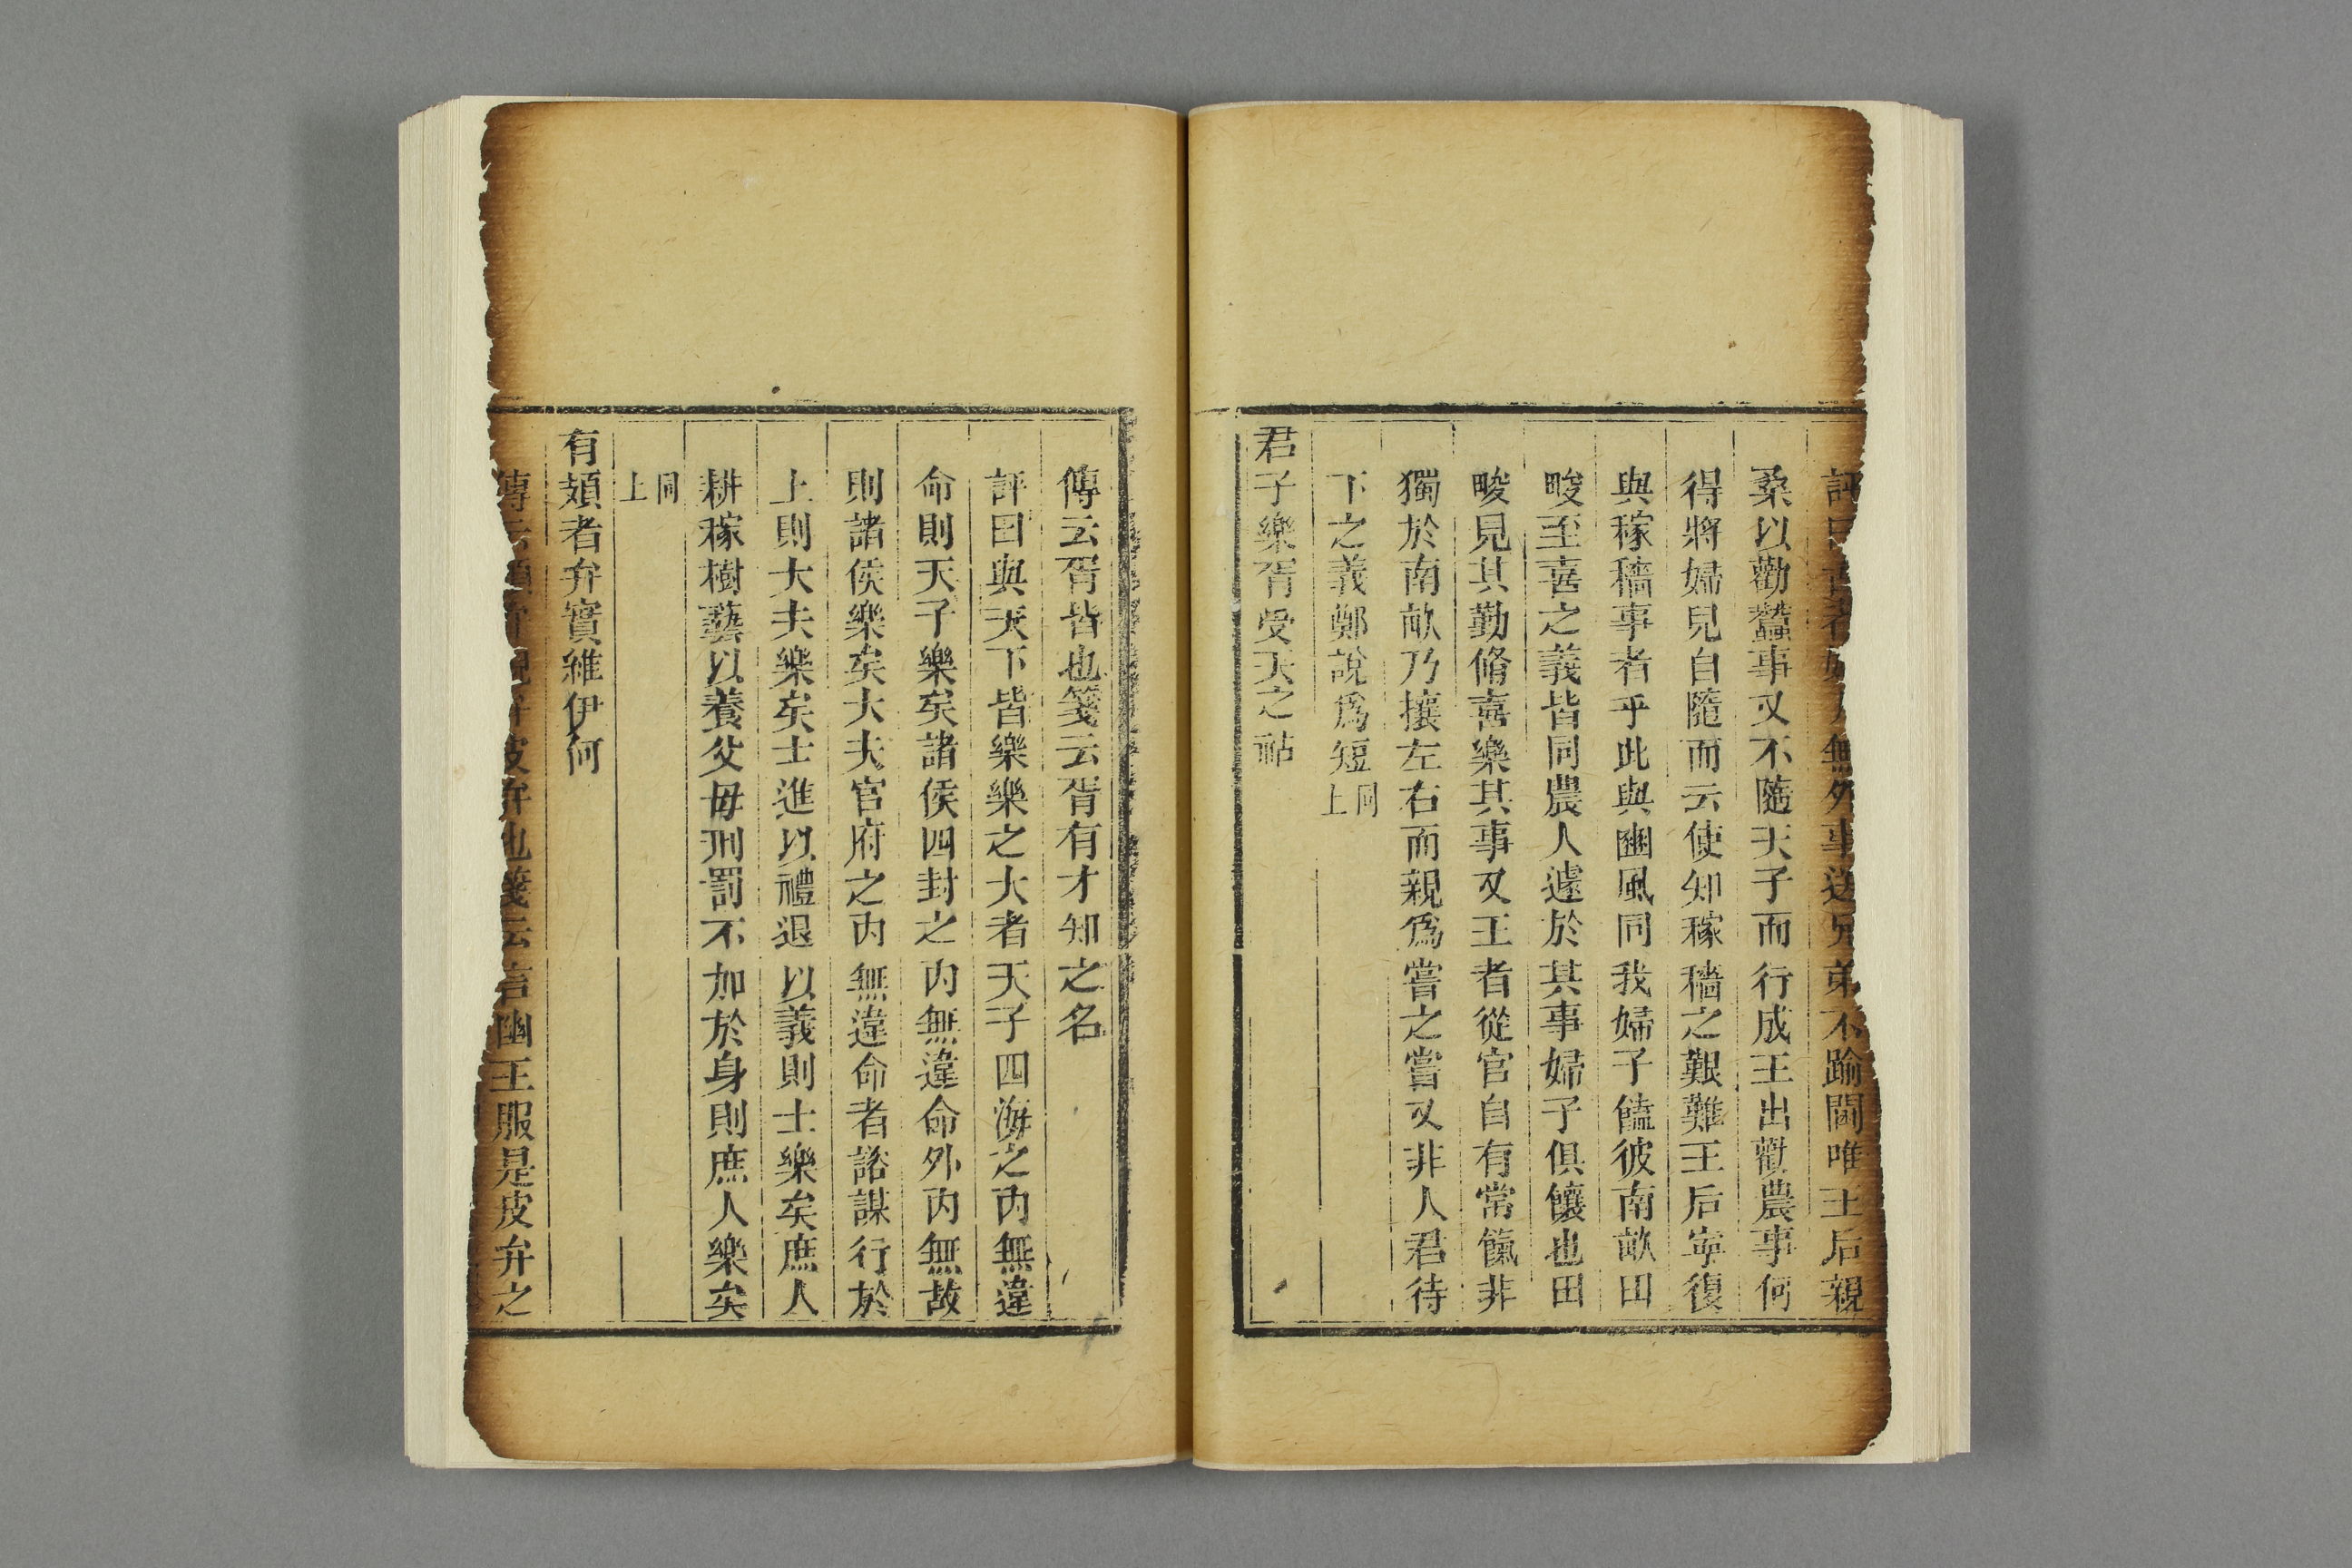 評曰古者婦人無外事送兄弟不踰閾唯王后親
桑以勸蠶事又不隨天子而行成王出觀農事何
得將婦兒自隨而云使知稼穡之艱難王后寧復
與稼穡事者乎此與豳風同我婦子饁彼南畝田
畯至喜之義皆同農人遽於其事婦子俱饟也田
畯見其勤脩喜樂其事又王者從官自有常餼非
獨於南畝乃攘左右而親爲嘗之嘗又非人君待
下之義鄭說爲短同上
君子樂胥受天之祜
傳云胥皆也箋云胥有才知之名
評曰與天下皆樂樂之大者天子四海之內無違
命則天子樂矣諸侯四封之內無違命外內無故
則諸侯樂矣大夫官府之內無違命者諮謀行於
上則大夫樂矣士進以禮退以義則士樂矣庶人
耕稼樹藝以養父母刑罰不加於身則庶人樂矣
同上
有頍者弁實維伊何
傳云頍弁貌弁皮弁也箋云言幽王服是皮弁之